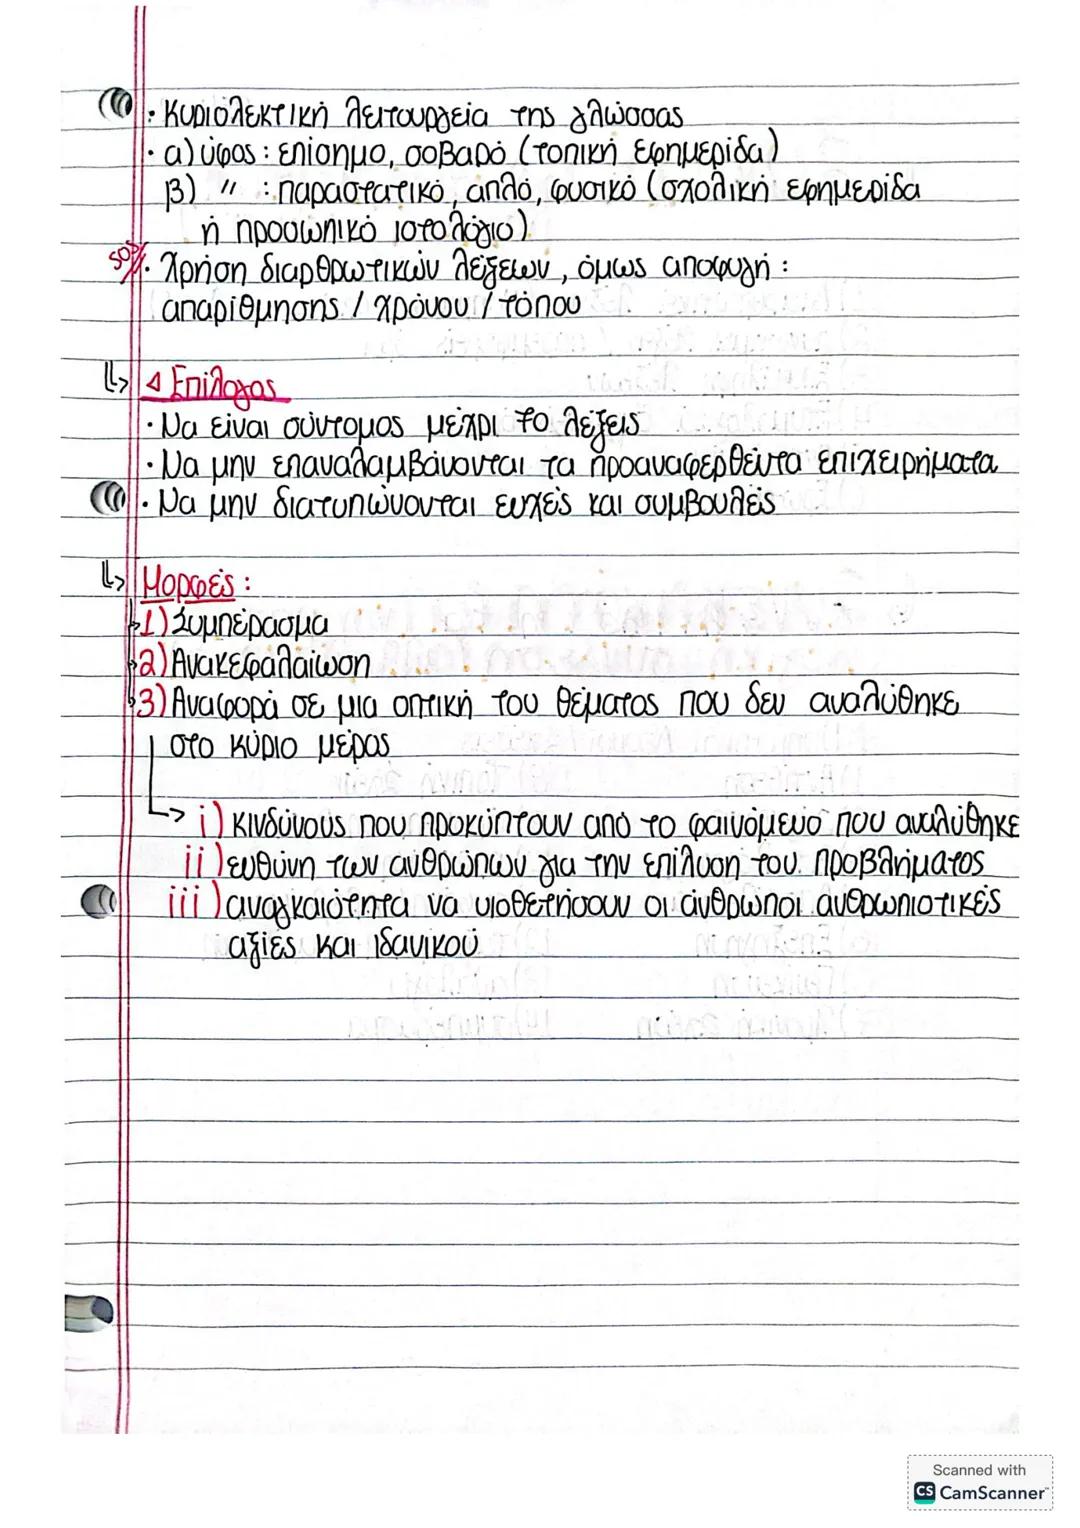 · Κυριολεκτική λειτουργεία της γλώσσας
· α) ύφος : επίσημο, σοβαρό (τοπική εφημερίδα)
β) " : παραστατικό, απλό, φυσικό (σχολική εφημερίδα
ή προσωπικό ιστολόγιο)
50% · Χρήση διαρθρωτικών λέξεων, όμως αποφυγή :
απαρίθμησης / χρόνου / τόπου
Επίλογος
· Να είναι σύντομος μέχρι 70 λέξεις
· Να μην επαναλαμβάνονται τα προαναφερθέντα επιχειρήματα
· Να μην διατυπώνονται ευχές και συμβουλές
Μορφές :
1) Συμπέρασμα
2) Ανακεφαλαίωση
3) Αναφορά σε μια οπτική του θέματος που δεν αναλύθηκε
στο κύριο μέρος
i) κινδύνους που προκύπτουν από το φαινόμενο που αναλύθηκε
ii) ευθύνη των ανθρώπων για την επίλυση του προβλήματος
iii) αναγκαιότητα να υιοθετήσουν οι άνθρωποι ανθρωπιστικές
αξίες και ιδανικού
Scanned with
CS CamScanner